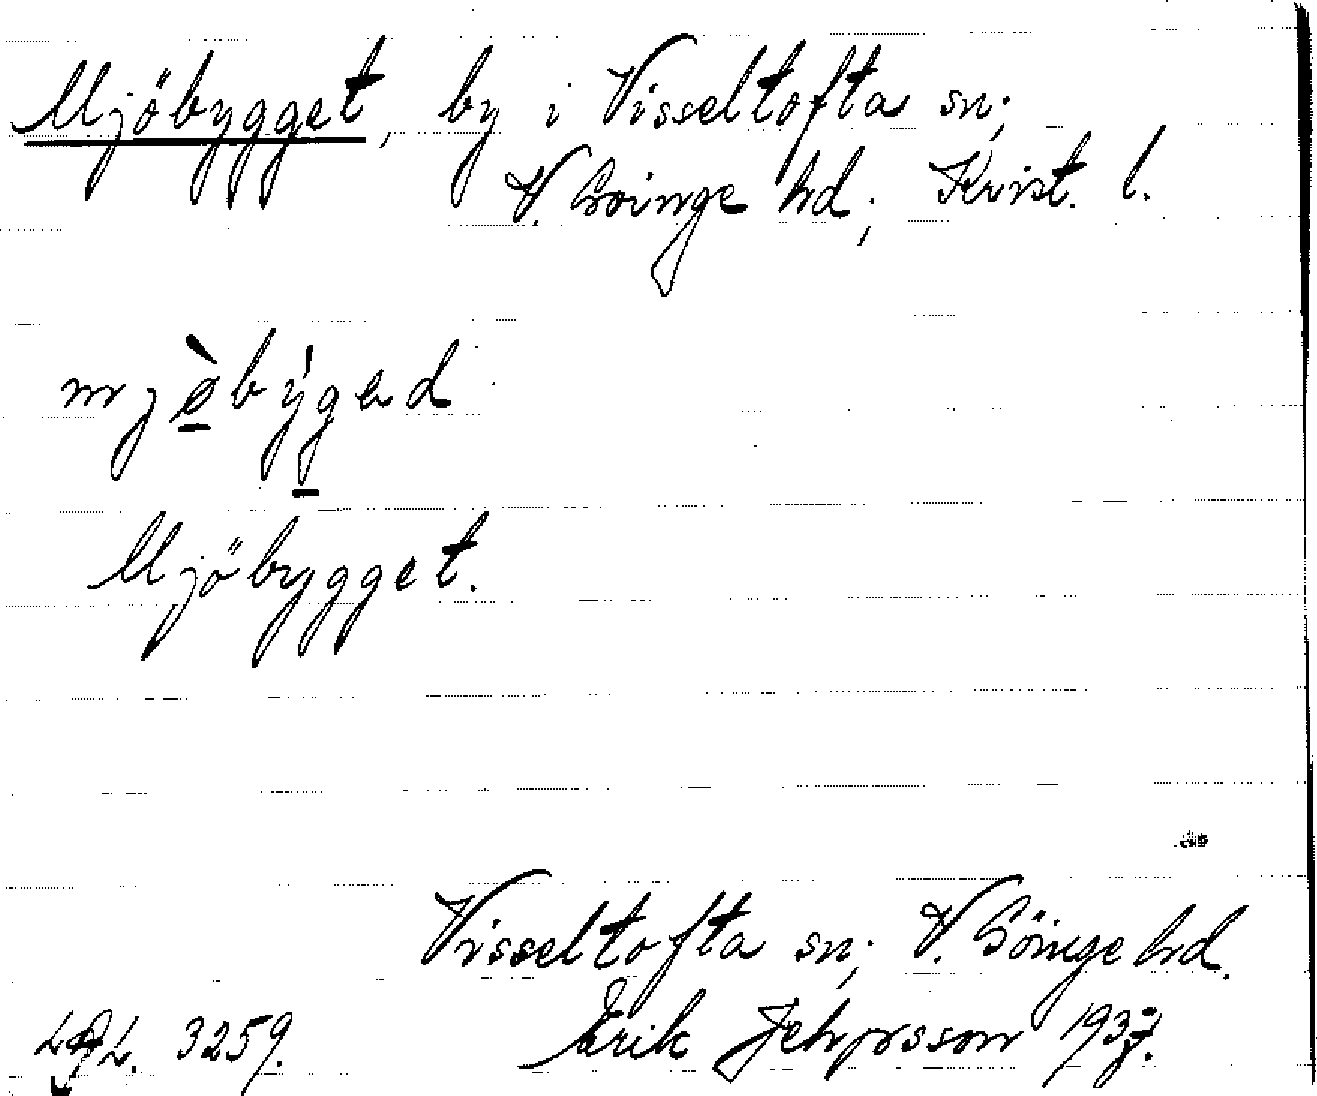 Mjöbygget, by i Visseltofta sn;
V. Göinge hd; Krist. l.
mjèbýgad
Mjöbygget.
Visseltofta sn; V. Göinge hd.
3259. Erik Jehpsson 1937.